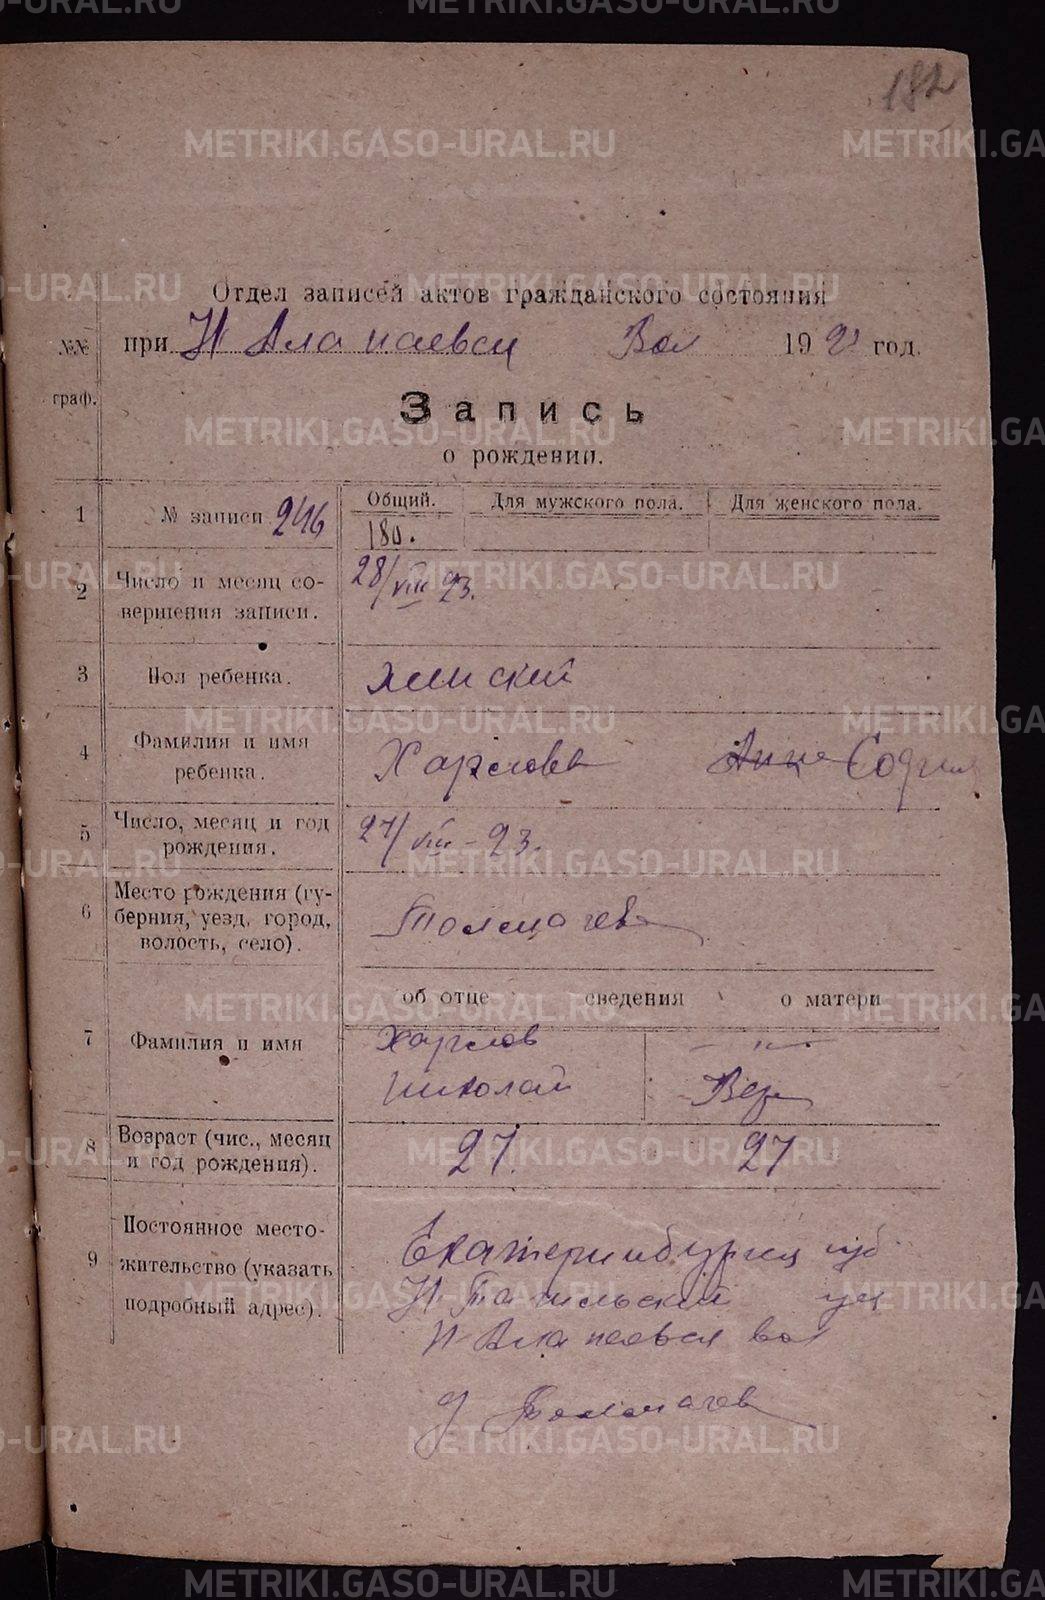 182
Отдел записей актов гражданского состояния
при Н Алапаевск Вол 1923 год.
№№ граф.
Запись
о рождении.
1 № записи 246 Общий. Для мужского пола. Для женского пола.
180.
2 Число и месяц со-
вершения записи. 28/VIII 23.
3 Пол ребенка. женский
4 Фамилия и имя
ребенка. Харлова Анна София
5 Число, месяц и год
рождения. 27/VIII - 23.
6 Место рождения (гу-
берния, уезд, город,
волость, село). Толмачева
об отце сведения о матери
7 Фамилия и имя Харлов — " —
Николай Вера
8 Возраст (чис., месяц
и год рождения). 27. 27
9 Постоянное место-
жительство (указать
подробный адрес). Екатеринбургск губ
Н Тагильский уез
Н Алапаевск вол
д Толмачев
METRIKI.GASO-URAL.RU